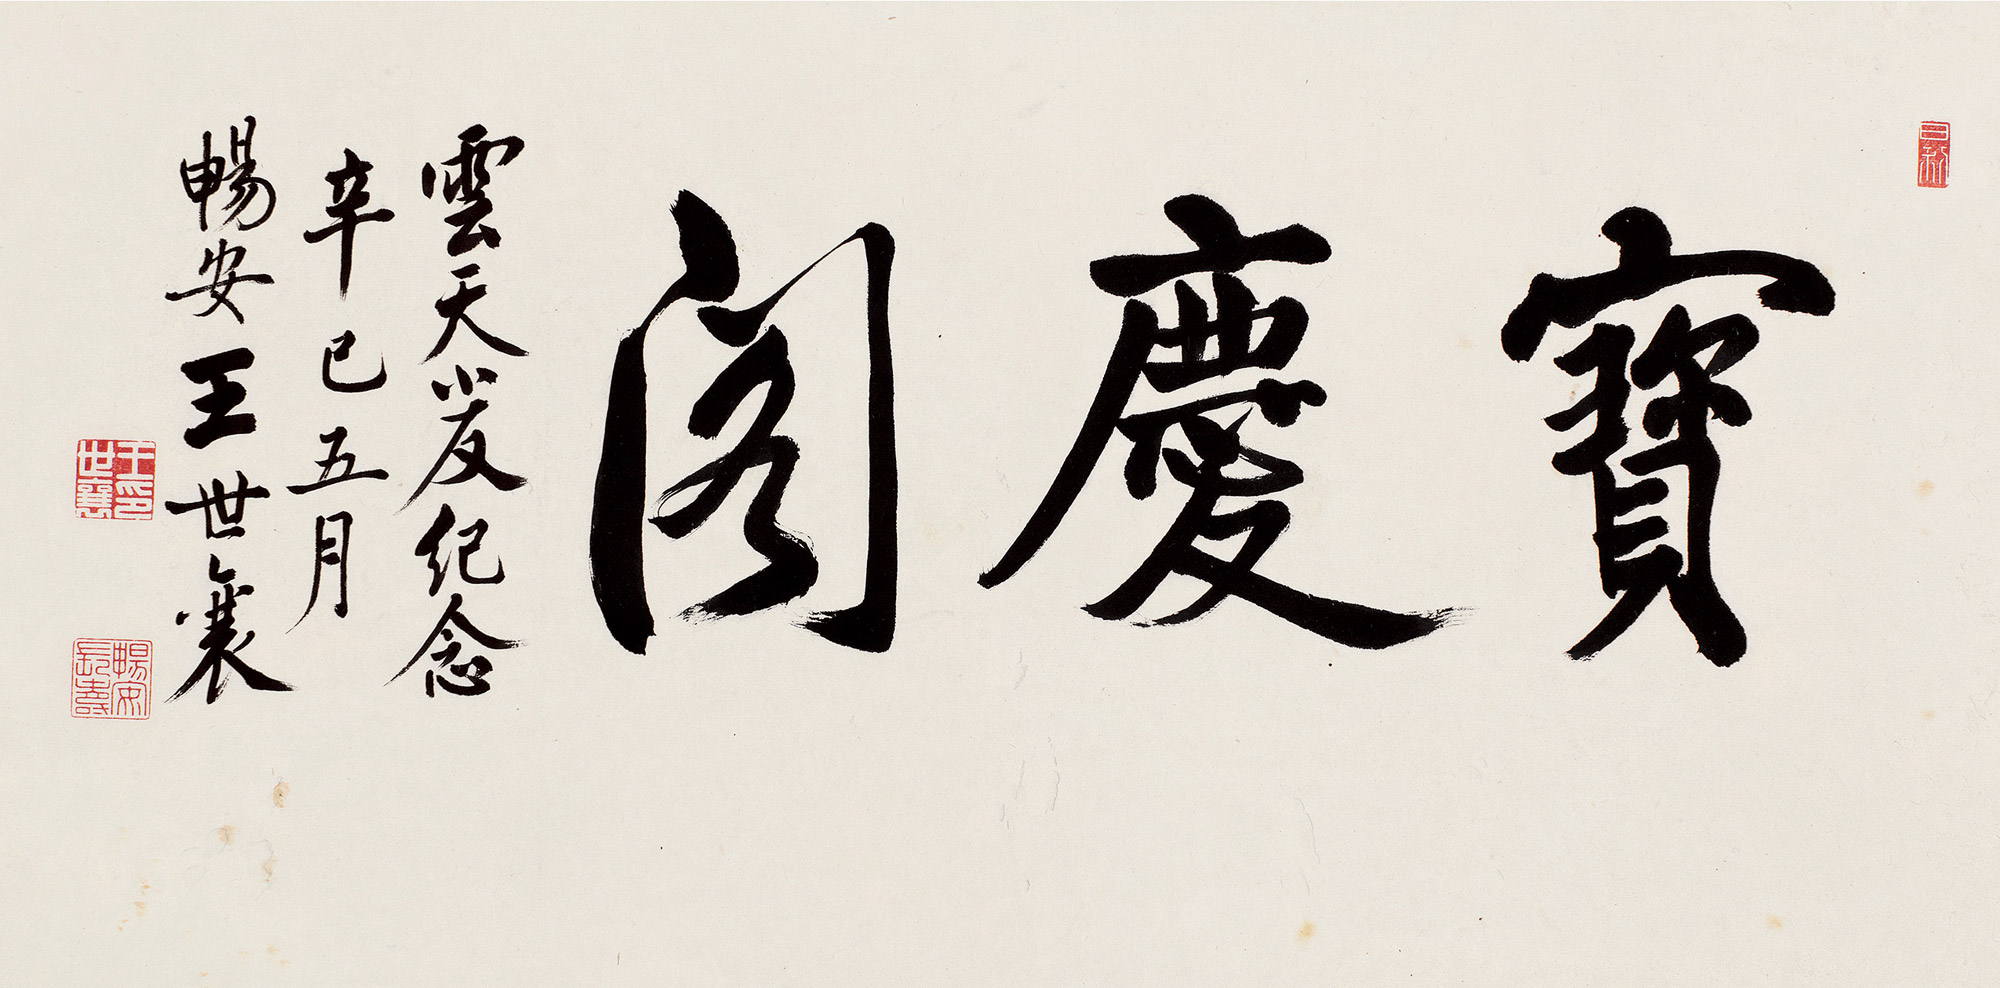 寶慶閣
雲天小友紀念
辛巳五月
暢安王世襄
日新
王世襄印
暢安長壽